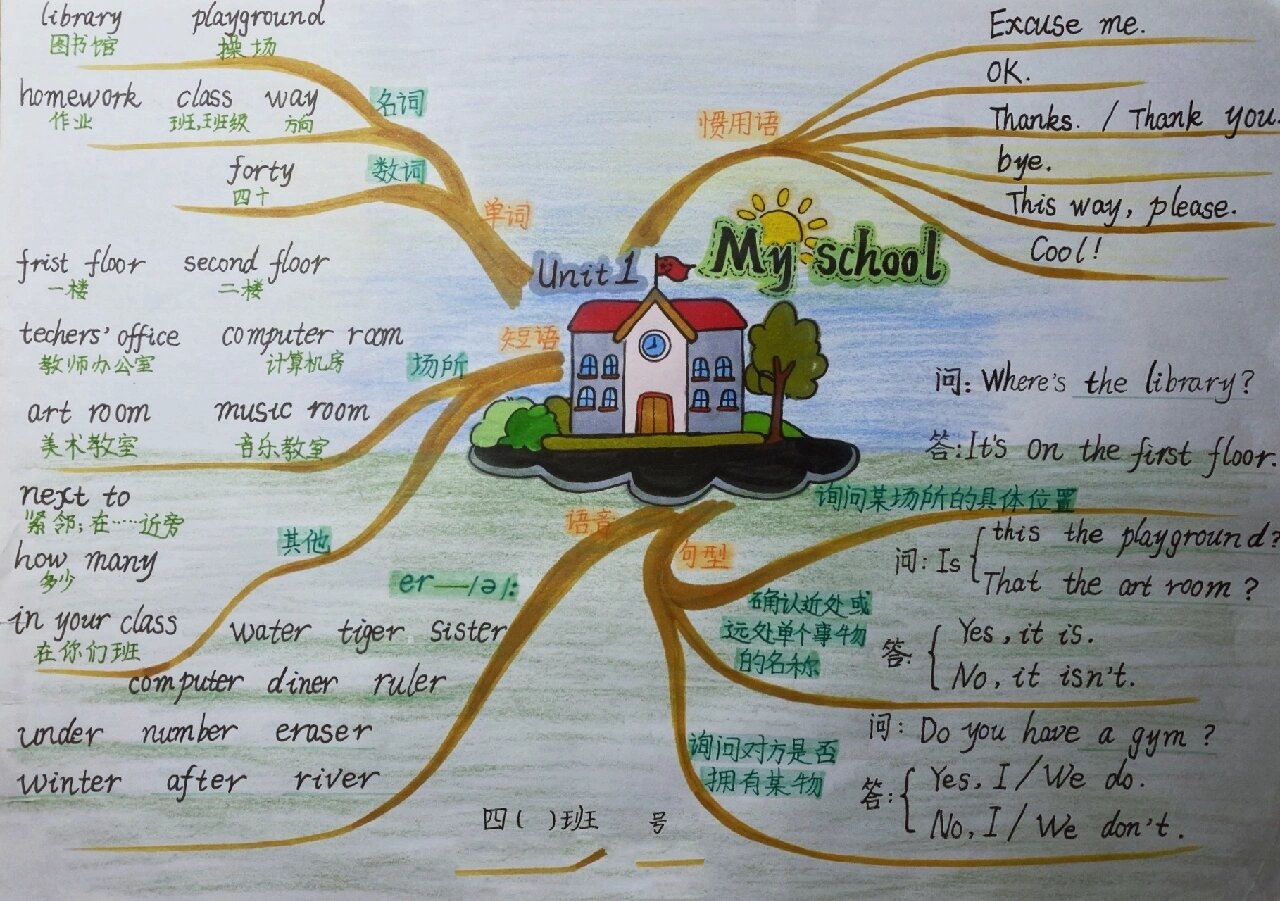 library playground
图书馆 操场
homework class way
作业 班,班级 方向
名词
forty
四十
数词
单词
frist floor second floor
一楼 二楼
techers' office computer room
教师办公室 计算机房
art room music room
美术教室 音乐教室
场所
短语
next to
紧邻;在……近旁
how many
多少
in your class
在你们班
其他
er—/ə/:
water tiger sister
computer diner ruler
under number eraser
winter after river
语音
Unit 1 My school
惯用语
Excuse me.
OK.
Thanks. / Thank you.
bye.
This way, please.
Cool!
句型
问: Where's the library?
答: It's on the first floor.
询问某场所的具体位置
问: Is { this the playground?
That the art room?
答: { Yes, it is.
No, it isn't.
确认近处或
远处单个事物
的名称
问: Do you have a gym?
答: { Yes, I / We do.
No, I / We don't.
询问对方是否
拥有某物
四( )班 号